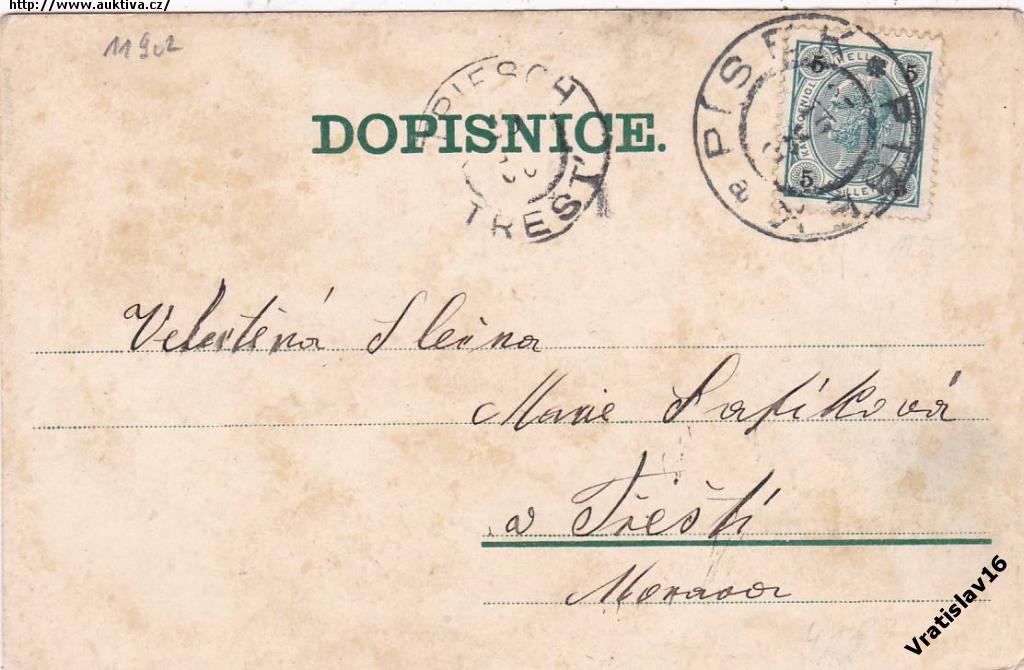 http://www.auktiva.cz/
11902
DOPISNICE.
TRIESCH
TREST
PISEK * PISEK
a
5 5
5 5
Velectěná Slečna
Marie Šafíková
v Třešti
Morava
Vratislav16